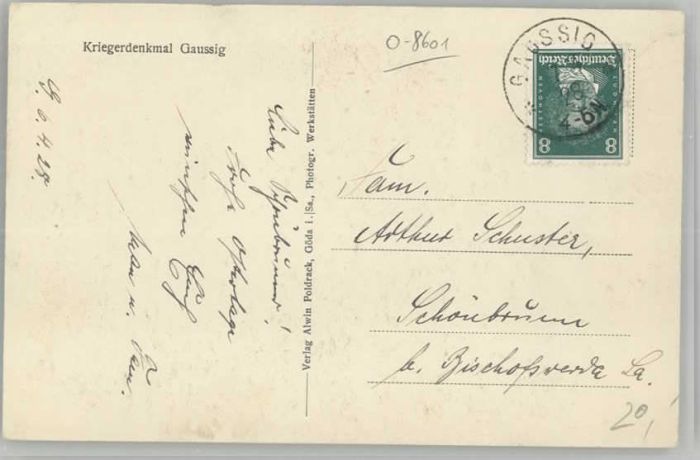 Kriegerdenkmal Gaussig
O-8601
GAUSSIG
4-6N
Deutsches Reich
BEETHOVEN
8 8
G. 6.4.28.
Liebe Schönbrunner!
Frohe Ostertage
wünschen Euch
Verlag Alwin Poldrack, Göda i. Sa., Photogr. Werkstätten
Fam.
Arthur Schuster,
Schönbrunn
b. Bischofswerda Sa.
20,